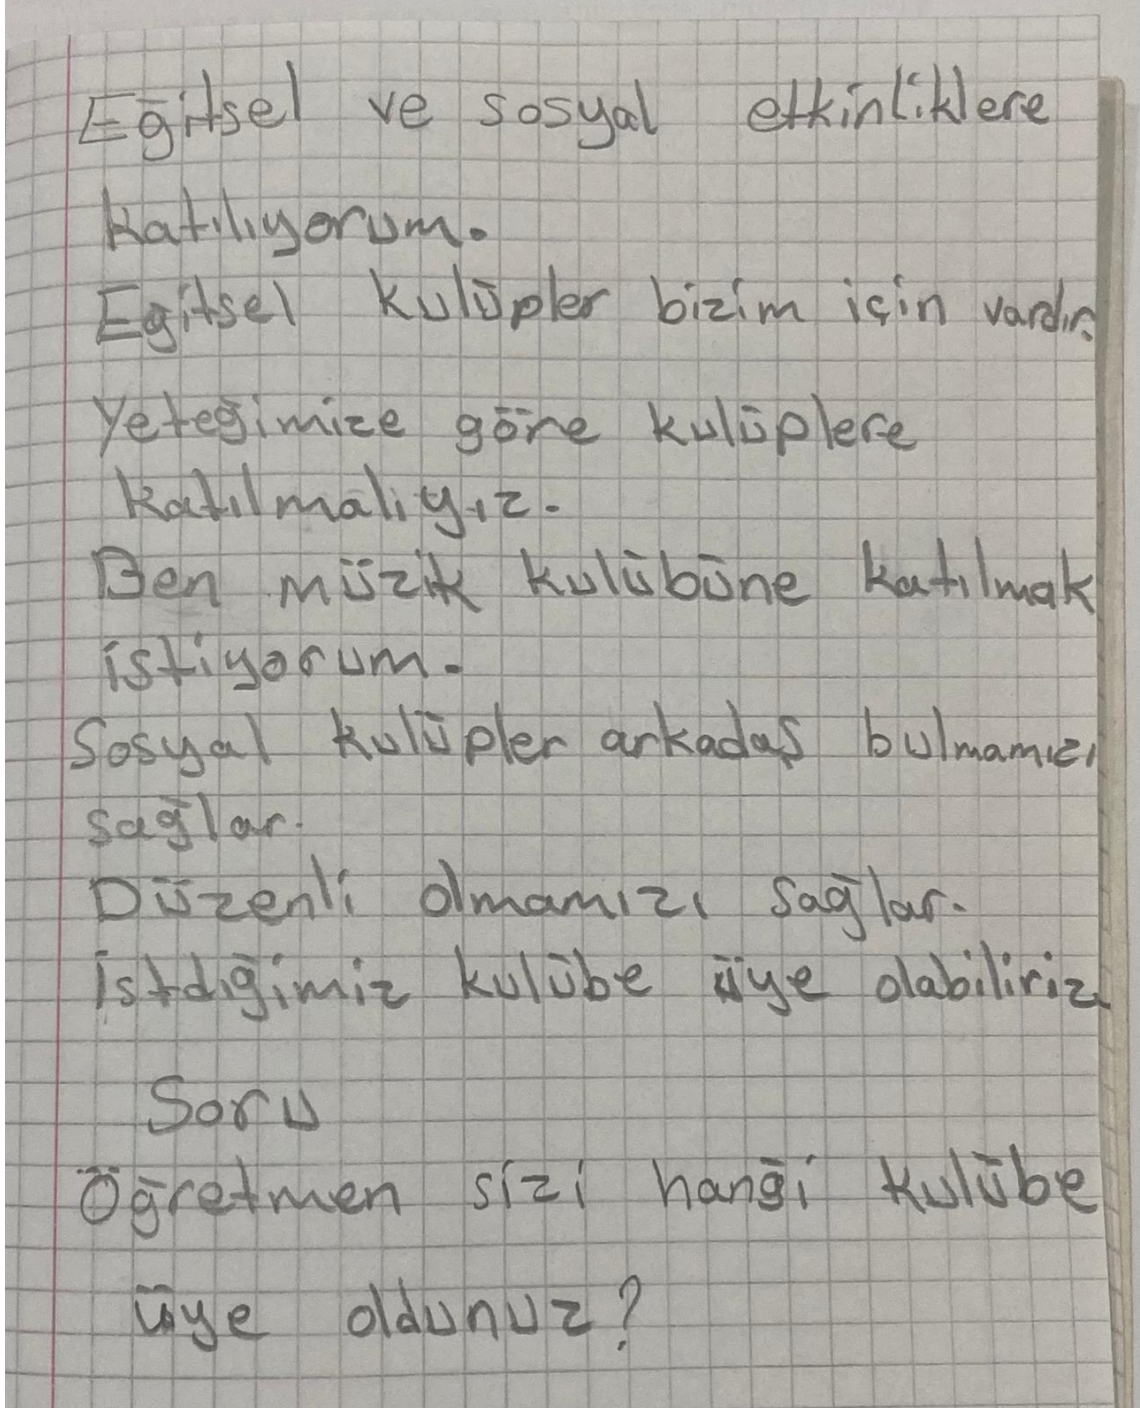 Eğitsel ve sosyal etkinliklere
katılıyorum.
Egitsel kulüpler bizim için vardır.
Yeteğimize göre kulüplere
katılmalıyız.
Ben müzik kulübüne katılmak
istiyorum.
Sosyal kulüpler arkadaş bulmamızı
sağlar.
Düzenli olmamızı sağlar.
İstdiğimiz kulübe üye olabiliriz.
Soru
Öğretmen sizi hanği kulübe
üye oldunuz?